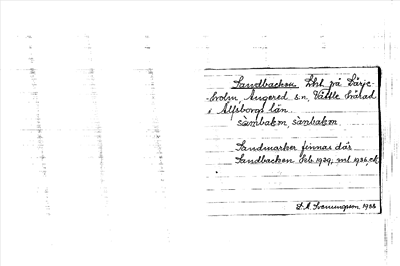 Sandbacken. Lht på Lärje-
holm, Angered s:n, Vättle härad
i Älfsborgs län.
sàmbakεn, sànbakεn.
Sandmarker finnas där.
Sandbacken Leb. 1929; ml 1936, ek
D. A. Svenungson 1938